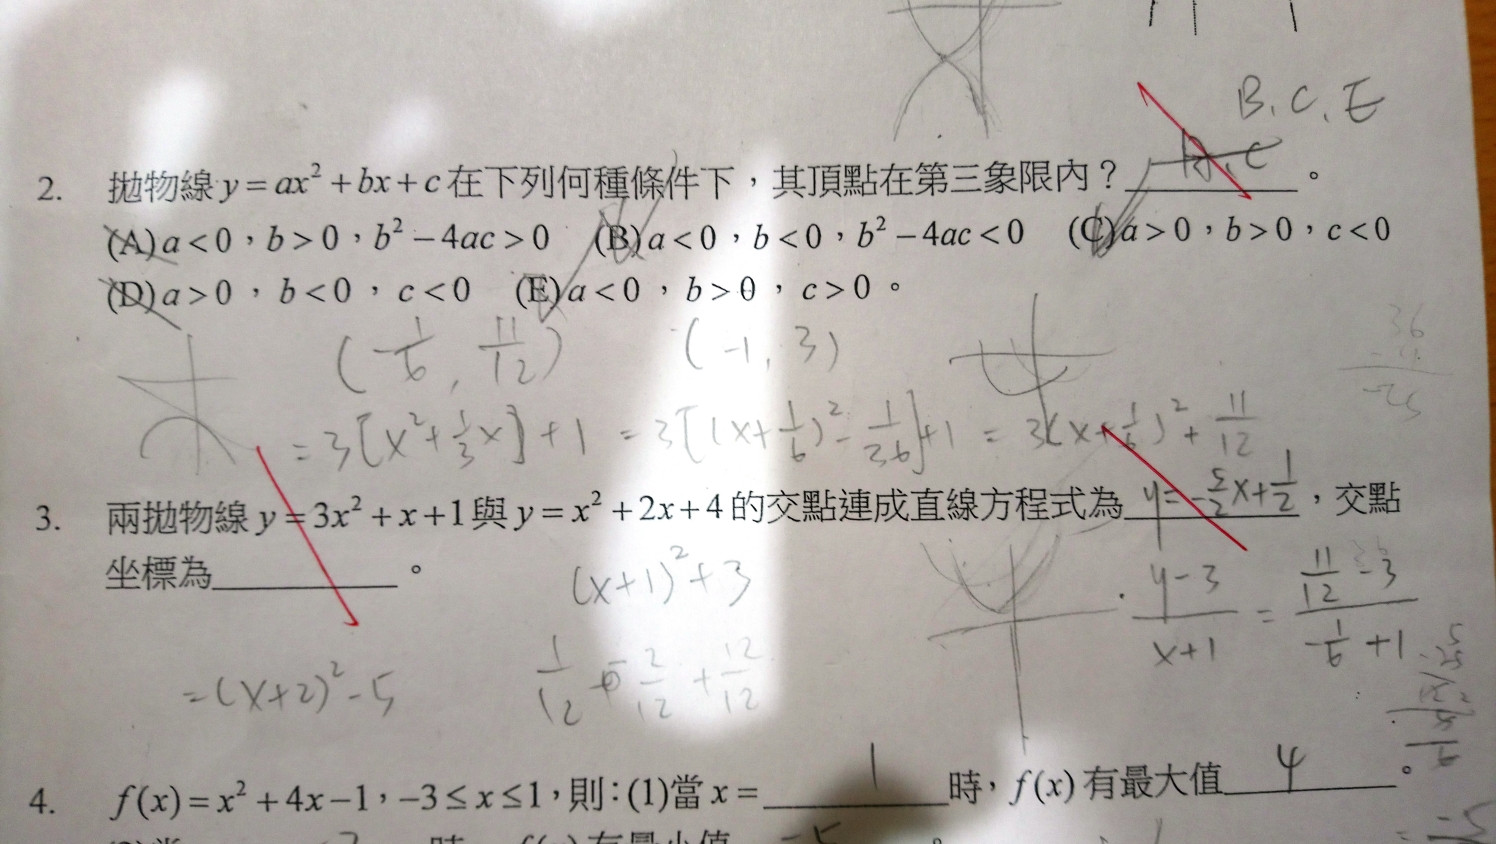 B, C, E
2. 拋物線 y = ax² + bx + c 在下列何種條件下，其頂點在第三象限內？ B, C 。
(A) a < 0，b > 0，b² − 4ac > 0 (B) a < 0，b < 0，b² − 4ac < 0 (C) a > 0，b > 0，c < 0
(D) a > 0，b < 0，c < 0 (E) a < 0，b > 0，c > 0。
(-1/6, 11/12) (-1, 3)
= 3[x² + 1/3 x] + 1 = 3[(x + 1/6)² - 1/36] + 1 = 3(x + 1/6)² + 11/12
3. 兩拋物線 y = 3x² + x + 1 與 y = x² + 2x + 4 的交點連成直線方程式為 y = -5/2 x + 1/2，交點
坐標為 。
(x+1)² + 3
y-3 / x+1 = 11/12 - 3 / -1/6 + 1
= (x+2)² - 5
4. f(x) = x² + 4x − 1，−3 ≤ x ≤ 1，則：(1)當 x = 1 時，f(x) 有最大值 4 。